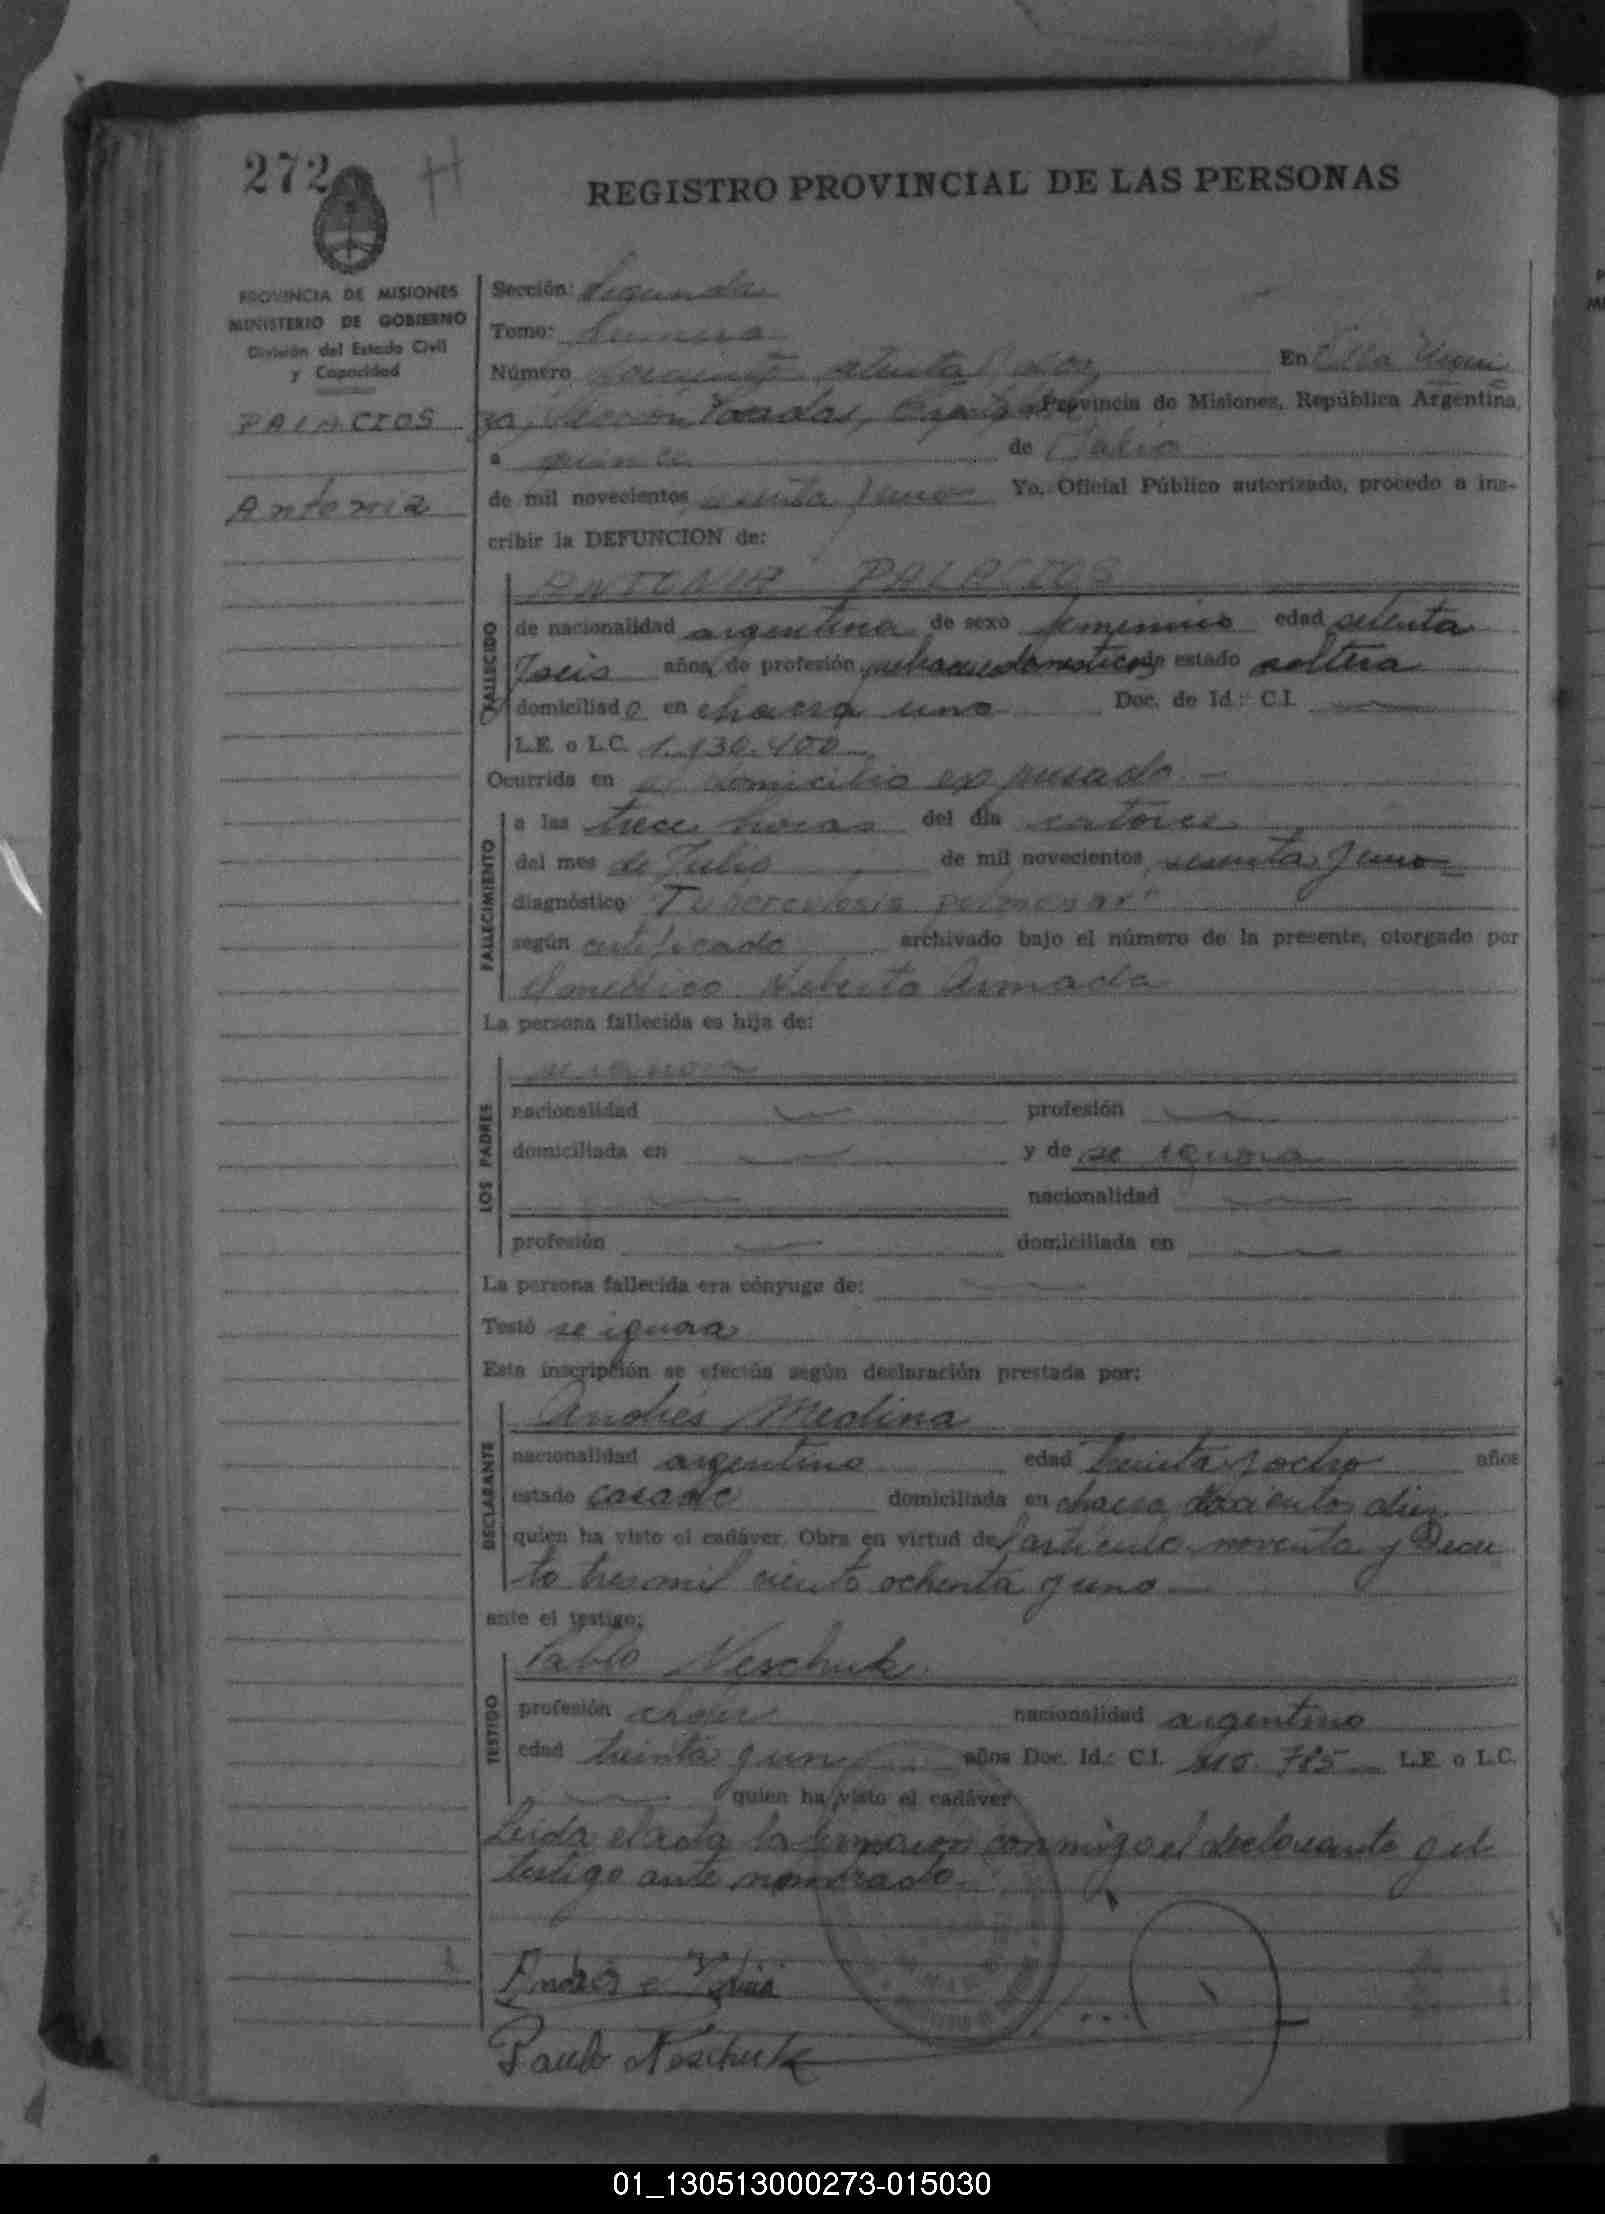 272 H
REGISTRO PROVINCIAL DE LAS PERSONAS
PROVINCIA DE MISIONES
MINISTERIO DE GOBIERNO
División del Estado Civil
y Capacidad
PALACIOS
Antonia
Sección: Segunda
Tomo: Primero
Número Doscientos setenta y dos En Villa Urqui
za, Sección Posadas, Capital Provincia de Misiones, República Argentina,
a quince de Julio
de mil novecientos sesenta y uno Yo, Oficial Público autorizado, procedo a ins-
cribir la DEFUNCION de:
ANTONIA PALACIOS
FALLECIDO
de nacionalidad argentina de sexo femenino edad setenta
y seis años, de profesión quehaceres domésticos de estado soltera
domiciliada en chacra uno Doc. de Id.: C.I.
L.E. o L.C. 1.130.400
Ocurrida en el domicilio expresado
FALLECIMIENTO
a las trece horas del día catorce
del mes de Julio de mil novecientos sesenta y uno
diagnóstico "Tuberculosis pulmonar"
según certificado archivado bajo el número de la presente, otorgado por
el médico Armada
La persona fallecida es hija de:
LOS PADRES
se ignora
nacionalidad profesión
domiciliada en y de se ignora
nacionalidad
profesión domiciliada en
La persona fallecida era cónyuge de:
Testó se ignora
Esta inscripción se efectúa según declaración prestada por:
DECLARANTE
Andrés Medina
nacionalidad argentino edad treinta y ocho años
estado casado domiciliada en chacra doscientos diez
quien ha visto el cadáver. Obra en virtud del artículo noventa y Decre
to tres mil ciento ochenta y uno
ante el testigo:
TESTIGO
Pablo Neschuk
profesión chofer nacionalidad argentino
edad treinta y un años Doc. Id.: C.I. 110.785 L.E. o L.C.
quien ha visto el cadáver
Leida el acta la firmaron conmigo el declarante y el
testigo ante nombrado.
Paulo Neschuk
01_130513000273-015030